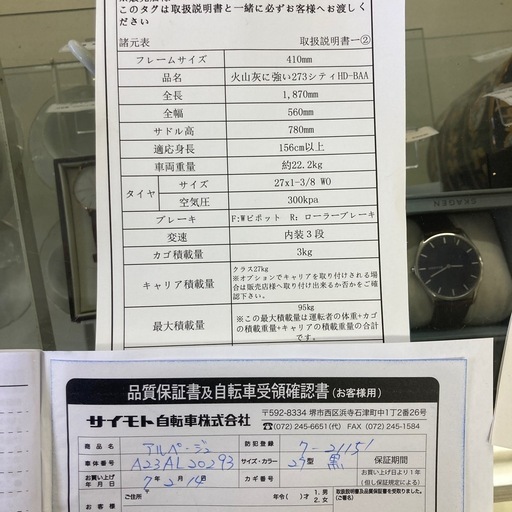 このタグは取扱説明書と一緒に必ずお客様へお渡しく
諸元表 取扱説明書ー②
フレームサイズ 410mm
品名 火山灰に強い273シティHD-BAA
全長 1,870mm
全幅 560mm
サドル高 780mm
適応身長 156cm以上
車両重量 約22.2kg
タイヤ サイズ 27x1-3/8 WO
空気圧 300kpa
ブレーキ F:Wピボット R: ローラーブレーキ
変速 内装3段
カゴ積載量 3kg
キャリア積載量 クラス27kg
※オプションでキャリアを取り付けされる場合は販売店様へ取り付け出来るか否かをご確認下さい。
最大積載量 95kg
※この最大積載量は運転者の体重+カゴの積載重量+キャリアの積載重量の合計です。
SKAGEN
品質保証書及自転車受領確認書(お客様用)
サイモト自転車株式会社 〒592-8334 堺市西区浜寺石津町中1丁2番26号
☎(072) 245-6651(代) FAX (072) 245-1584
商品名 アルページュ 防犯登録 7-21151
車体番号 A23AL20293 サイズ・カラー 27型 黒 保証期間
お買い上げ年月日 7 2 14 カギ番号 お買い上げ日より1年
(但し保証規定による)
ご住所 年令( )才 1.男 2.女 取扱説明書及品質保証書を受取りました。
(ご署名)